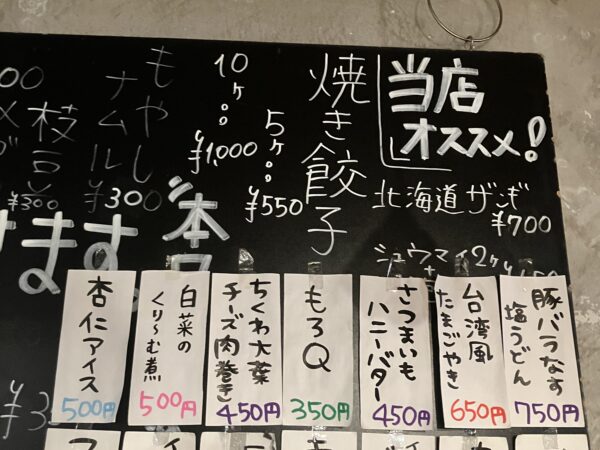 当店
オススメ!
北海道ザンギ
¥700
シュウマイ2ケ
焼き餃子
5ケ…¥550
10ケ…¥1,000
もやし
ナムル
¥300
枝豆
¥300
ます。
豚バラなす
塩うどん
750円
台湾風
たまごやき
650円
さつまいも
ハニーバター
450円
もろQ
350円
ちくわ大葉
チーズ肉巻き
450円
白菜の
くり〜む煮
500円
杏仁アイス
500円